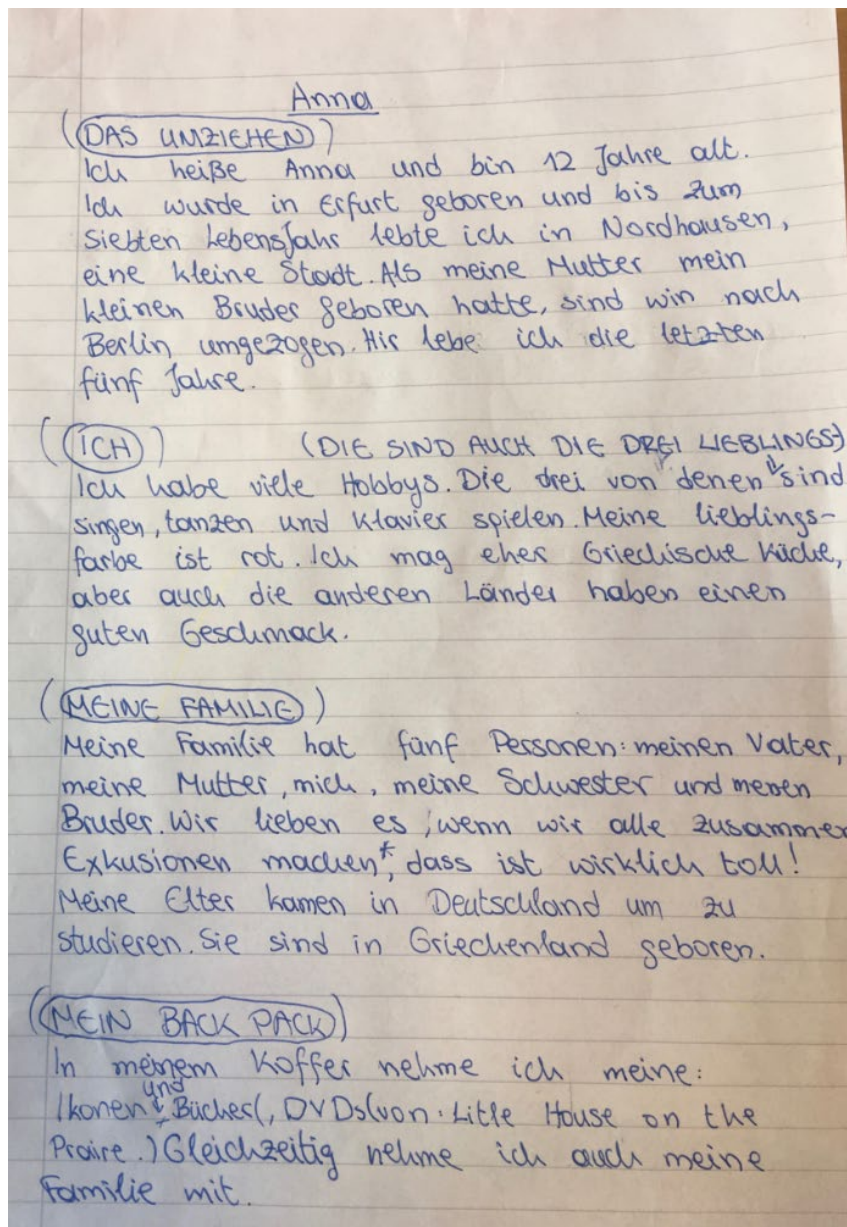 Anna
(DAS UMZIEHEN)
Ich heiße Anna und bin 12 Jahre alt.
Ich wurde in Erfurt geboren und bis zum
siebten Lebensjahr lebte ich in Nordhausen,
eine kleine Stadt. Als meine Mutter mein
kleinen Bruder geboren hatte, sind wir nach
Berlin umgezogen. Hir lebe ich die letzten
fünf Jahre.
(ICH) (DIE SIND AUCH DIE DREI LIEBLINGS)
Ich habe viele Hobbys. Die drei von denen sind
singen, tanzen und Klavier spielen. Meine lieblings-
farbe ist rot. Ich mag eher Griechische Küche,
aber auch die anderen Länder haben einen
guten Geschmack.
(MEINE FAMILIE)
Meine Familie hat fünf Personen: meinen Vater,
meine Mutter, mich, meine Schwester und meinen
Bruder. Wir lieben es, wenn wir alle zusammen
Exkusionen machen*, dass ist wirklich toll!
Meine Elter kamen in Deutschland um zu
studieren. Sie sind in Griechenland geboren.
(MEIN BACK PACK)
In meinem Koffer nehme ich meine:
und
Ikonen, Bücher(, DVDs(von: Litle House on the
Praire.) Gleichzeitig nehme ich auch meine
Familie mit.